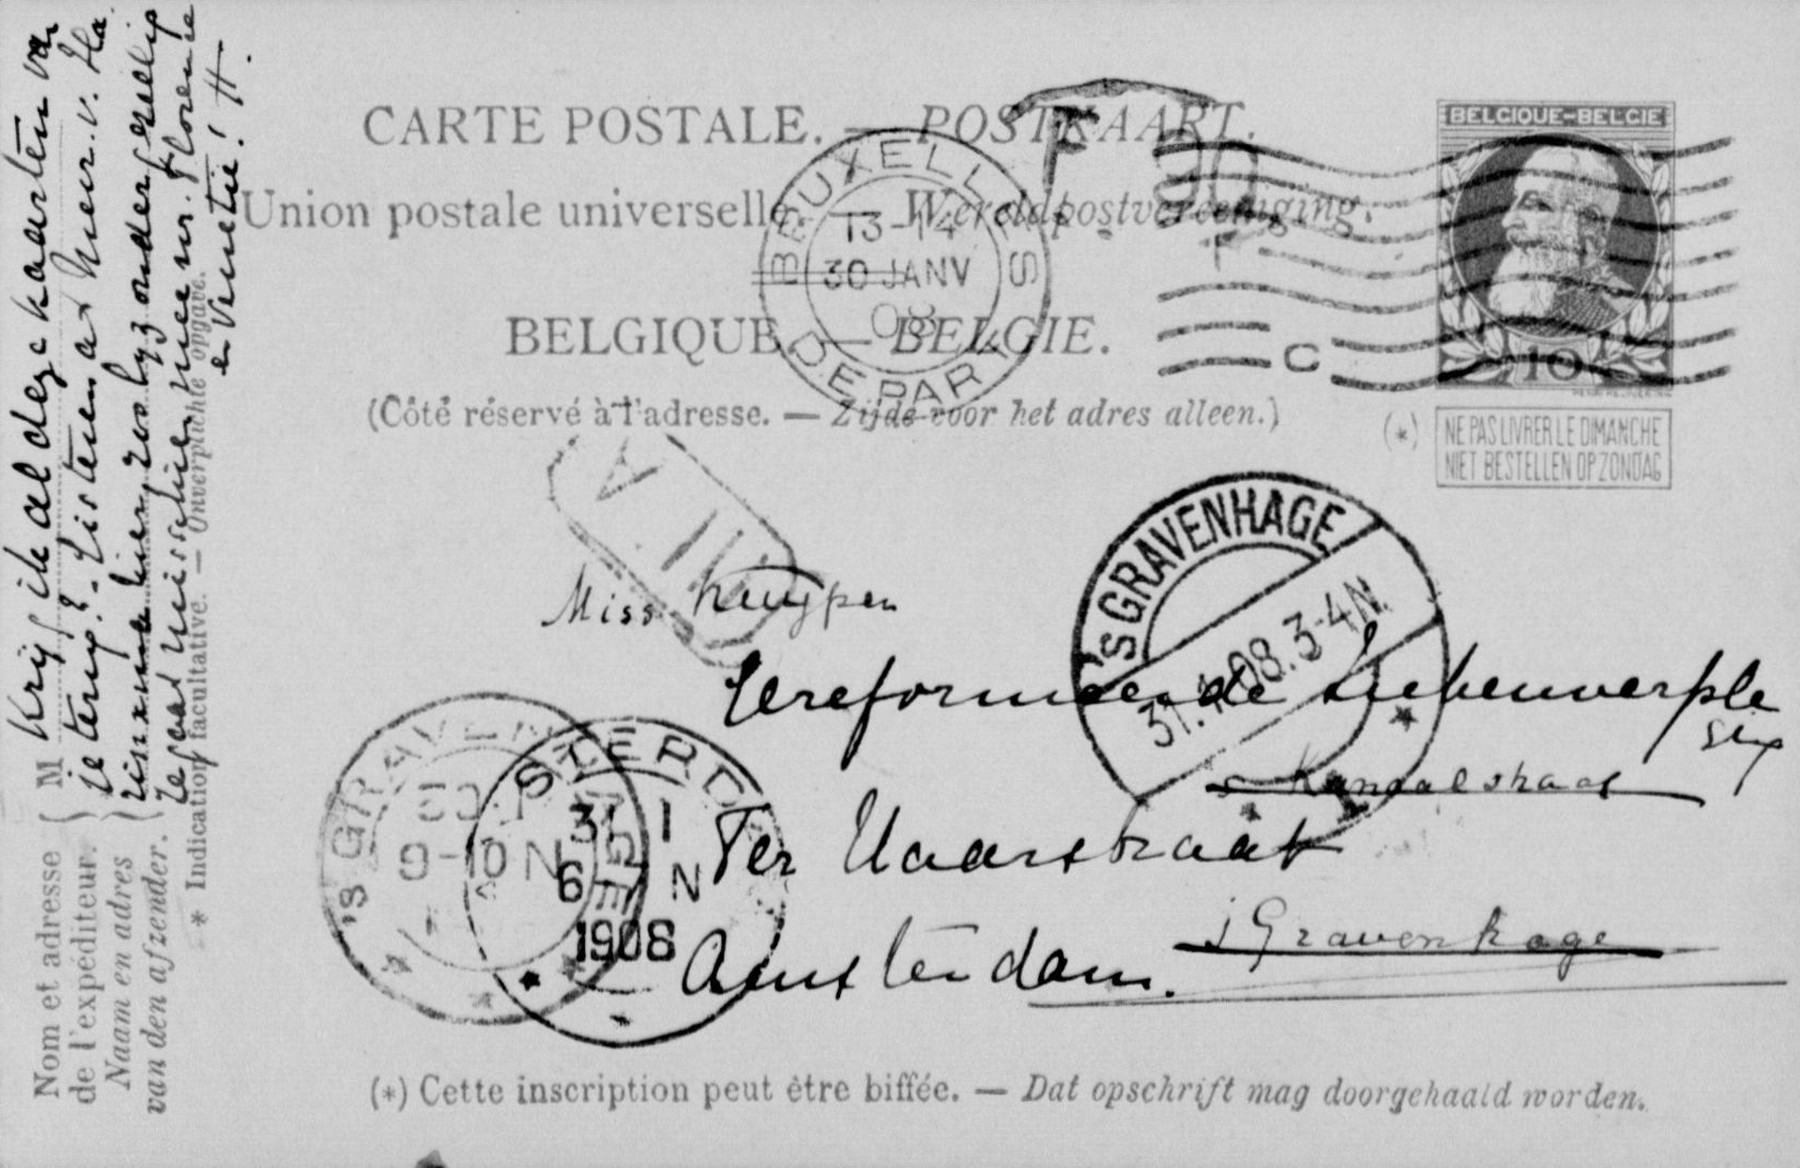 CARTE POSTALE. — POSTKAART.
Union postale universelle. — Wereldpostvereeniging.
BELGIQUE — BELGIE.
(Côté réservé à l'adresse. — Zijde voor het adres alleen.)
BELGIQUE-BELGIE
10
(*)
NE PAS LIVRER LE DIMANCHE
NIET BESTELLEN OP ZONDAG
BRUXELLES
13-14
30 JANV
08
DEPART
C
'SGRAVENHAGE
31.1.08.3-4N.
1
Miss Kuyper
Gereformeerde
Kanaalstraat
Ter Haarstraat
s Gravenhage
Amsterdam.
'S GRAVENHAGE
9-10 N
STERD
31 1
6 N
1908
Krijg ik al deze kaarten van
je terug? Gisteren a/d heer v. Ha
hier, zoo bijzonder gezellig
Je gaat misschien mee nr. Florence
en Venetie! H.
M
Nom et adresse
de l'expéditeur.
Naam en adres
van den afzender.
* Indication facultative. — Onverplichte opgave.
(*) Cette inscription peut être biffée. — Dat opschrift mag doorgehaald worden.